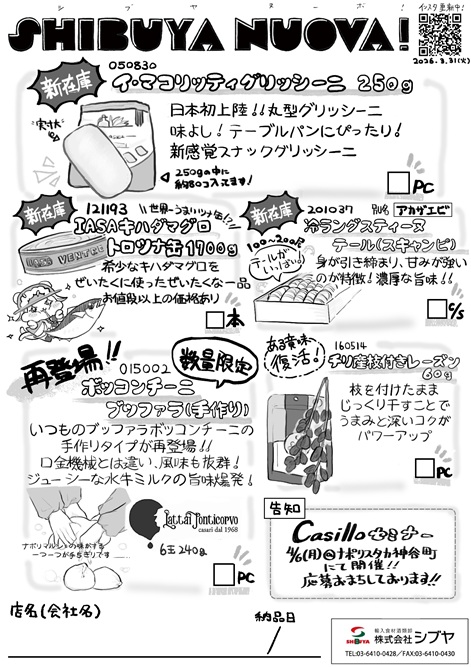 シブヤヌーボ!
SHIBUYA NUOVA!
インスタ更新中!
2026.3.31(火)
新在庫
050830
イ・マコリッティグリッシーニ 250g
"実状"
日本初上陸!!丸型グリッシーニ
味よし!テーブルパンにぴったり!
新感覚スナックグリッシーニ
250gの中に
約80コ入ってます!
PC
新在庫
121193
世界一うまいツナ缶!?
IASAキハダマグロ
トロツナ缶1700g
TUNA VENTRE
希少なキハダマグロを
ぜいたくに使ったぜいたくな一品
お値段以上の価値あり
本
新在庫
201037
別名 アカザエビ
冷ラングスティーヌ
テール(スキャンピ)
100~200尾
テールが
いっぱい!
身が引き締まり、甘みが強い
のが特徴!濃厚な旨味!!
c/s
再登場!!
数量限定
015002
ボッコンチーニ
ブッファラ(手作り)
いつものブッファラボッコンチーニの
手作りタイプが再登場!!
口金機械とは違い、風味も抜群!
ジューシーな水牛ミルクの旨味爆発!
ナポリマルシェの味がする
一つ一つが手ちぎりです
Lattai Ponticorvo
casari dal 1968
6玉240g
PC
ある意味
復活!
160514
チリ産枝付きレーズン
60g
枝を付けたまま
じっくり干すことで
うまみと深いコクが
パワーアップ
PC
告知
Casilloセミナー
4/6(月)@ナポリスタカ神谷町
にて開催!!
応募おまちしております!!
店名(会社名)
納品日
/
SHIBUYA
輸入食材酒類卸
株式会社 シブヤ
TEL:03-6410-0428/FAX:03-6410-0430